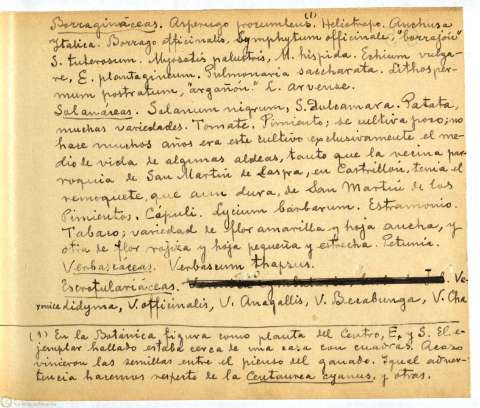 Borragináceas. Asperugo procumbens (1). Heliotropo. Anchusa
italica. Borrago officinalis. Symphytum officinale, "corrajoie"
S. tuberosum. Myosotis palustris, M. hispida. Echium vulga-
re, E. plantagineum. Pulmonaria saccharata. Lithosper-
mum postratum, "argañon." L. arvense.
Solanáceas. Solanum nigrum, S. Dulcamara. Patata,
muchas variedades. Tomate. Pimiento; se cultiva poco; no
hace muchos años era este cultivo exclusivamente el me-
dio de vida de algunas aldeas, tanto que la vecina par-
roquia de San Martin de Laspra, en Castrillón, tenía el
remoquete, que aun dura, de San Martin de los
Pimientos. Cápuli. Lycium bárbarum. Estramonio.
Tabaco; variedad de flor amarilla y hoja ancha, y
otra de flor rojiza y hoja pequeña y estrecha. Petunia.
Verbascáceas. Verbascum thapsus.
Escrofulariáceas. Ve-
ronica didyma, V. officinalis, V. Anagallis, V. Beccabunga, V. Cha
(1) En la Botánica figura como planta del Centro, E, y S. El e-
jemplar hallado estaba cerca de una casa con cuadras. Acaso
vinieron las semillas entre el pienso del ganado. Igual adver-
tencia haremos respecto de la Centaurea cyanus, y otras.